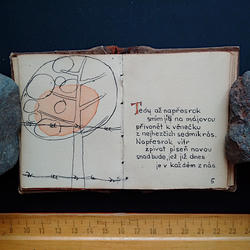 Tedy až napřesrok
smím jíti na májovou
přivonět k věnečku
z nejhezčích sedmikrás.
Napřesrok vítr
zpívat píseň novou
snad bude, jež již dnes
je v každém z nás.
5
12 13 14 15 16 17 18 19 20 21 22 23 24 25 26 27